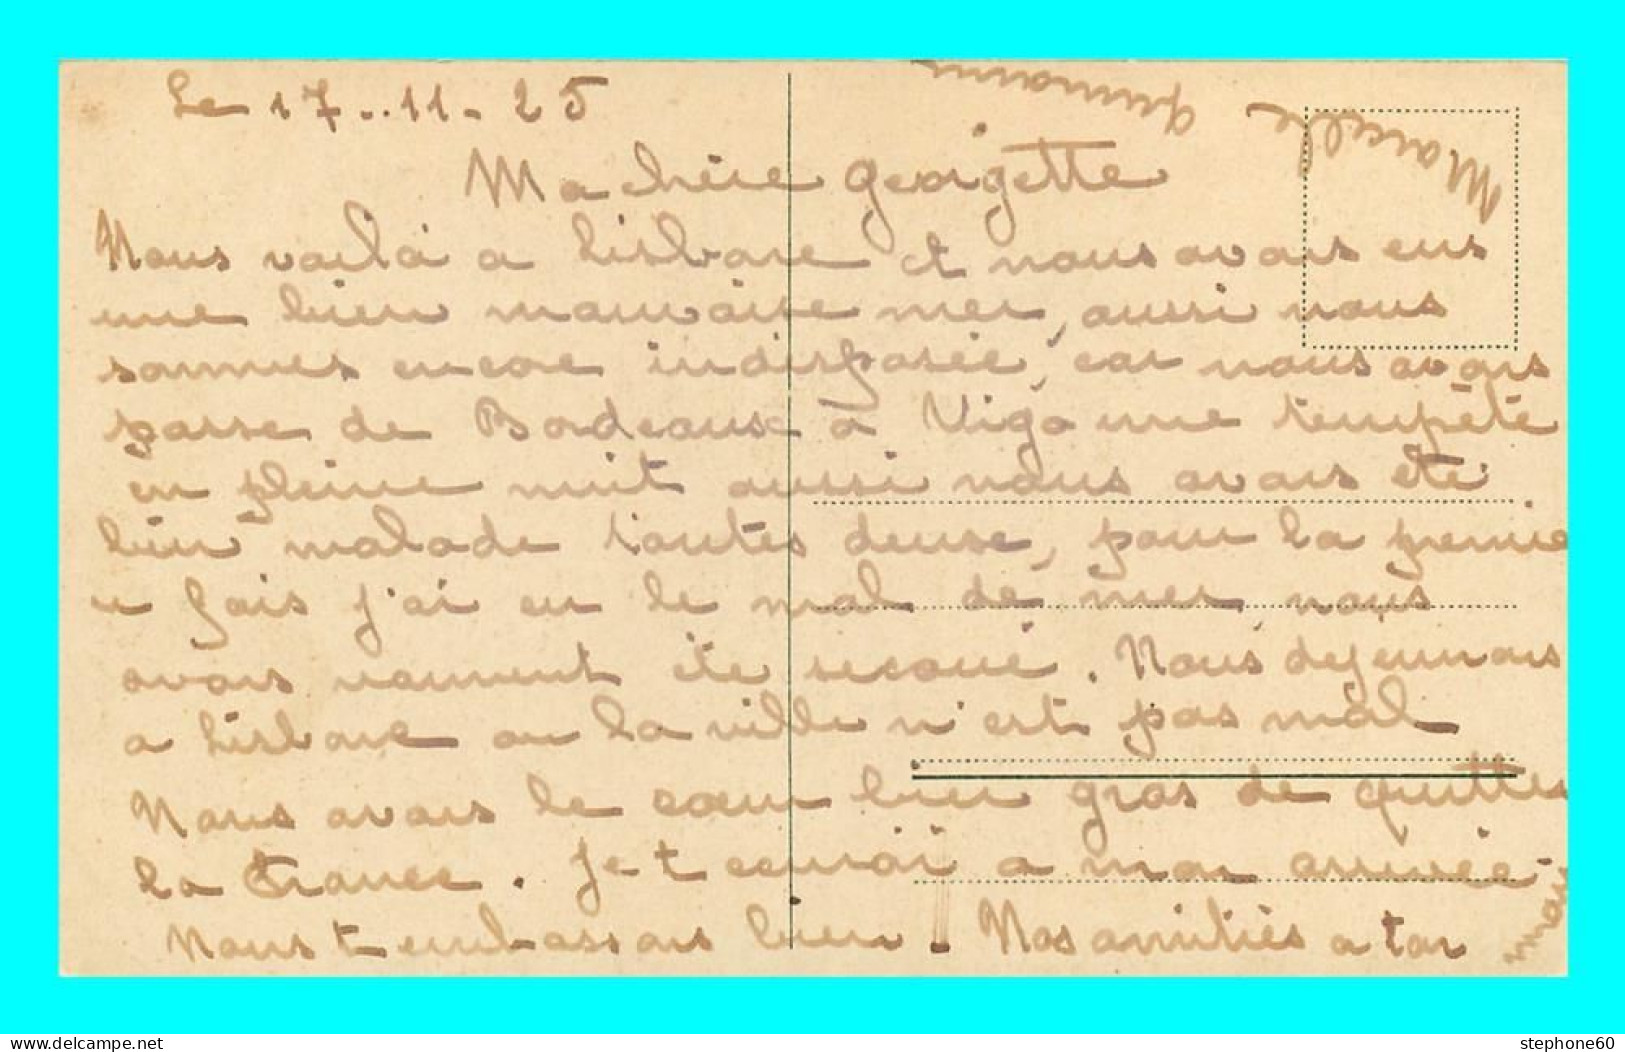 Le 17..11-25
Ma chère georgette
Nous voilà a Lisbone et nous avons eus
une bien mauvaise mer, aussi nous
sommes encore indisposée, car nous avons
passe de Bordeaux à Vigo une tempête
en pleine nuit aussi nous avons été
bien malade toutes deuxe, pour la premie
r fois j'ai eu le mal de mer nous
avons vraiment été secoué. Nous dejeunons
a Lisbone ou la ville n'est pas mal
Nous avons le cœur bien gros de quitter
la France. Je t ecrirai a mon arrivée
Nous t embrassons bien. Nos amitiés a ton
maman
Marcelle
Delcampe.net
stephone60